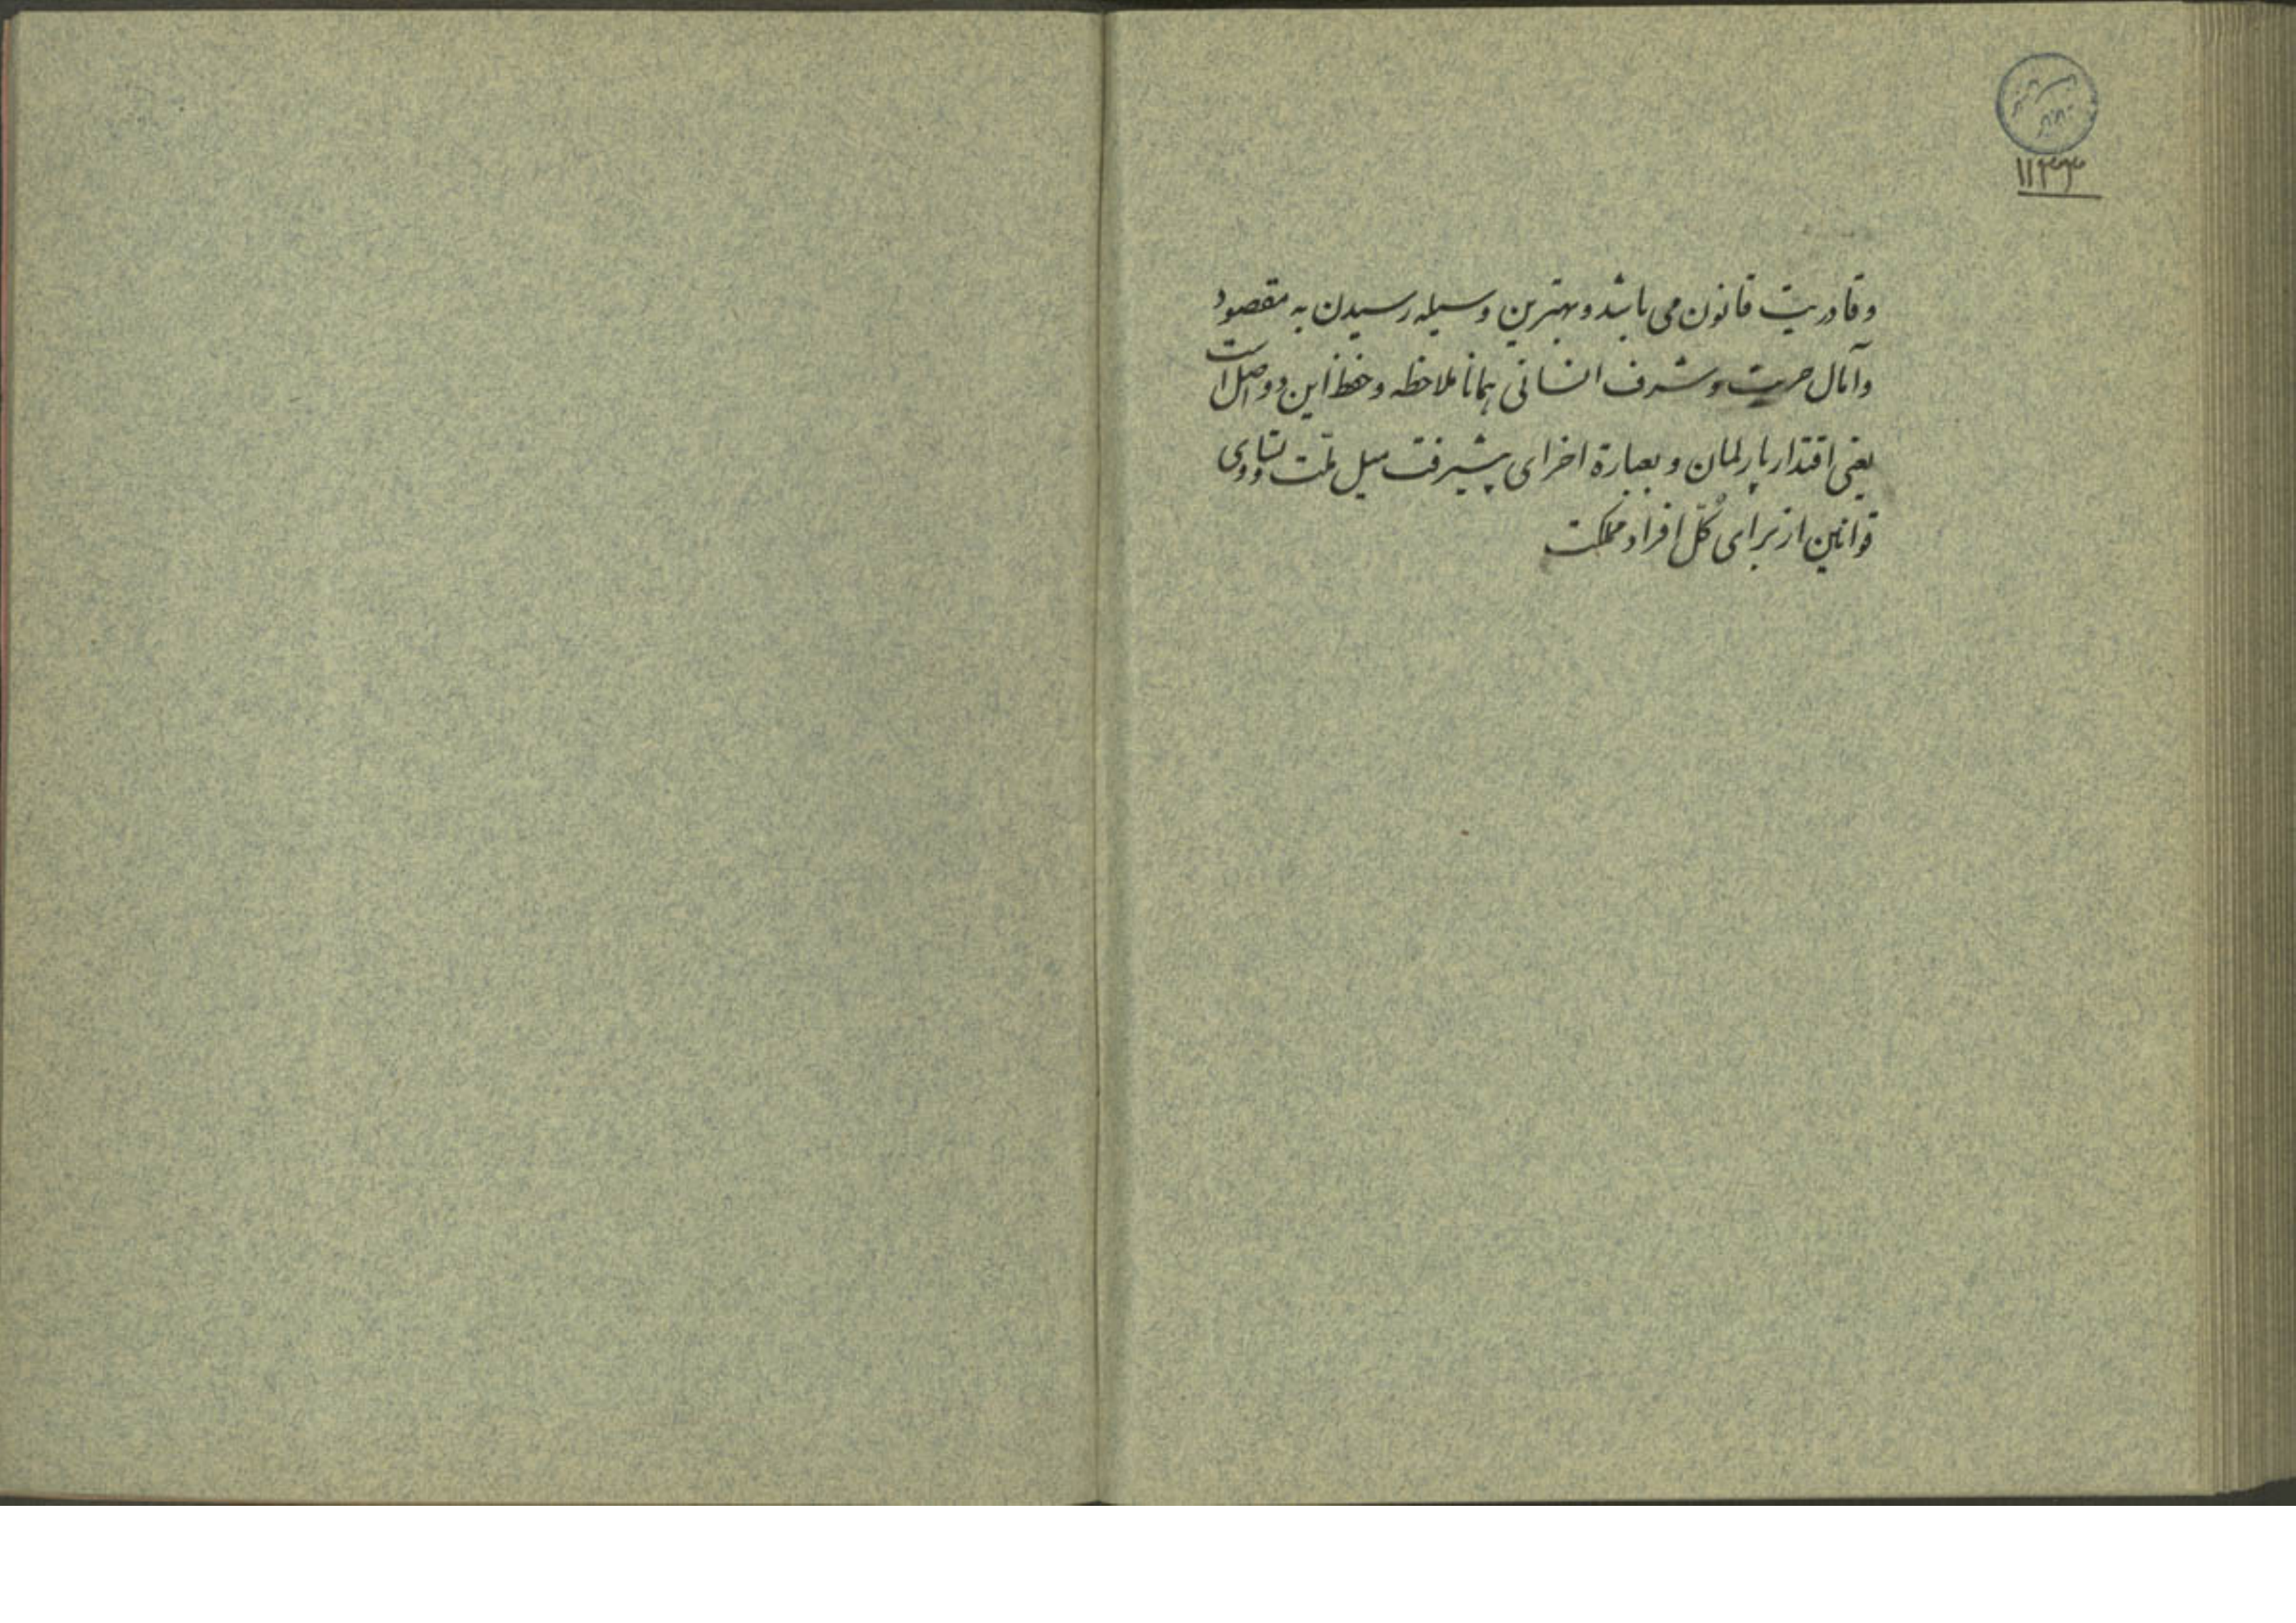 ۱۱۳۳
و قادریت قانون می باشد و بهترین وسیله رسیدن به مقصود
و آمال حریت و شرف انسانی همانا ملاحظه و حفظ این دو اصل است
یعنی اقتدار پارلمان و بعبارة اخرای پیشرفت میل ملّت و تساوی
قوانین از برای کُلّ افراد مملکت